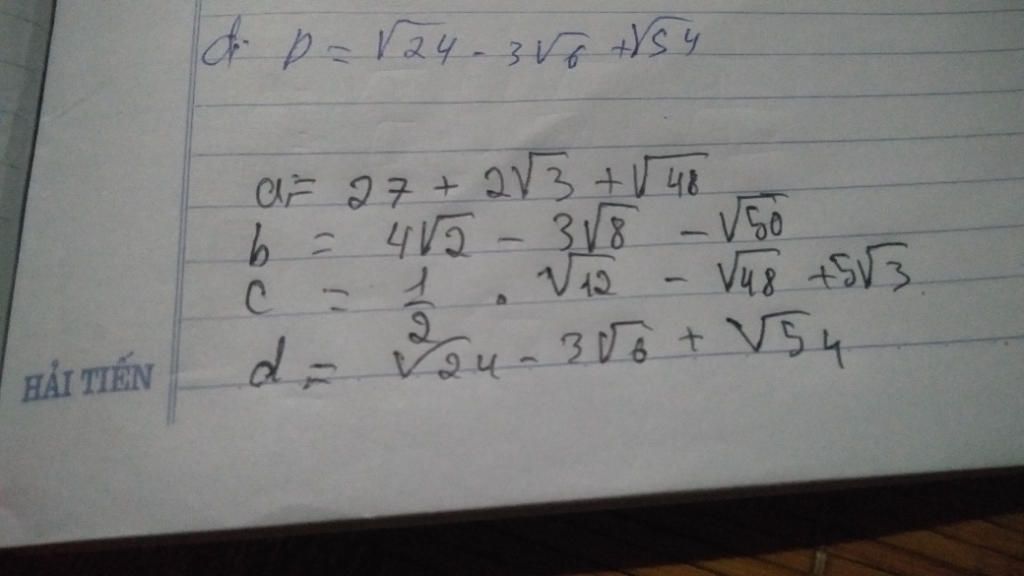 d. D = √24 - 3√6 + √54
a = 27 + 2√3 + √48
b = 4√2 - 3√8 - √50
c = 1/2 . √12 - √48 + 5√3
d = √24 - 3√6 + √54
HẢI TIẾN